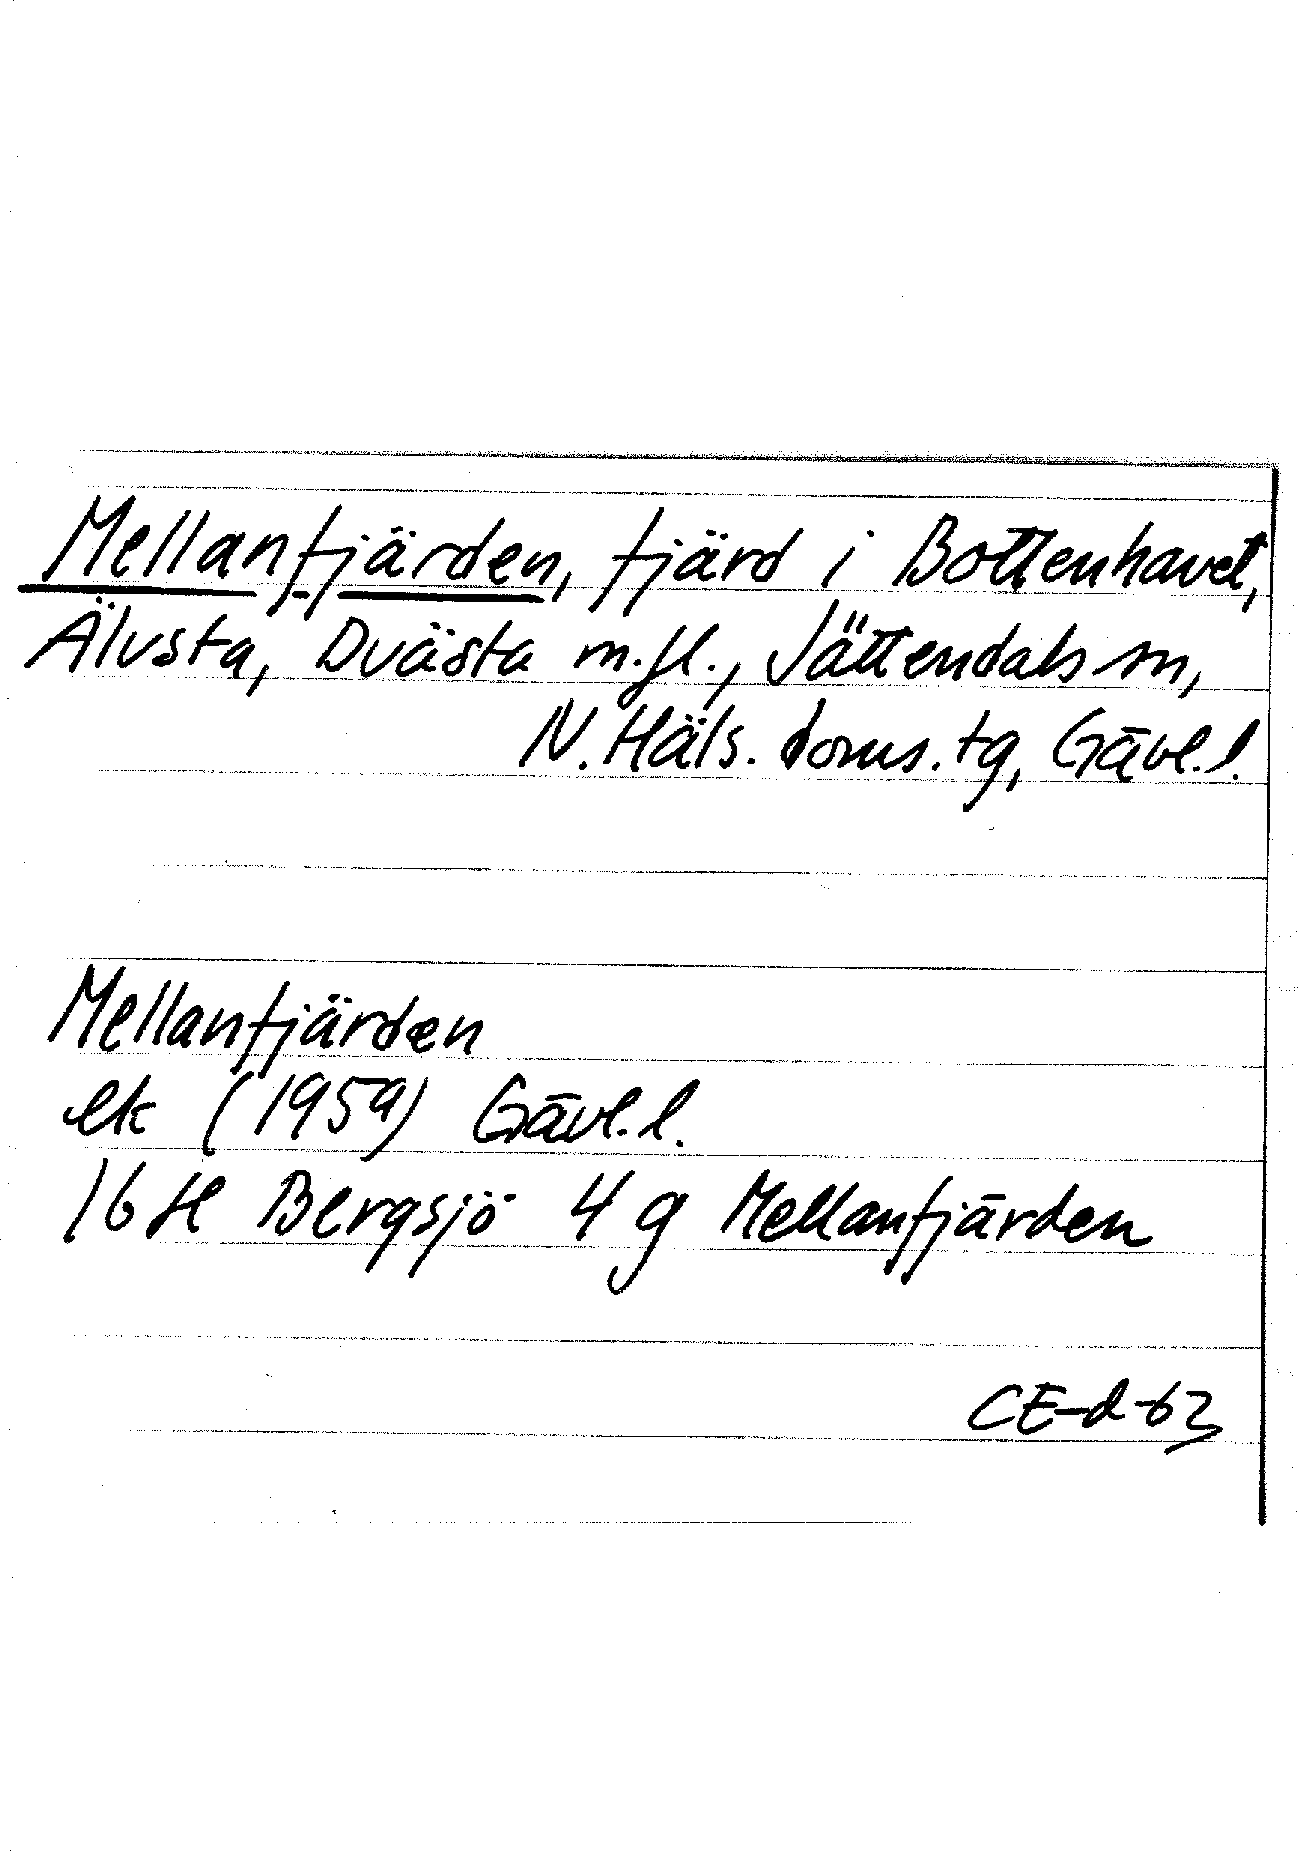 Mellanfjärden, fjärd i Bottenhavet,
Älvsta, Dvästa m.fl., Jättendals sn,
N. Häls. doms. tg, Gävl. l.
Mellanfjärden
ek (1959) Gävl. l.
16 H Bergsjö 4 g Mellanfjärden
CE-d-63